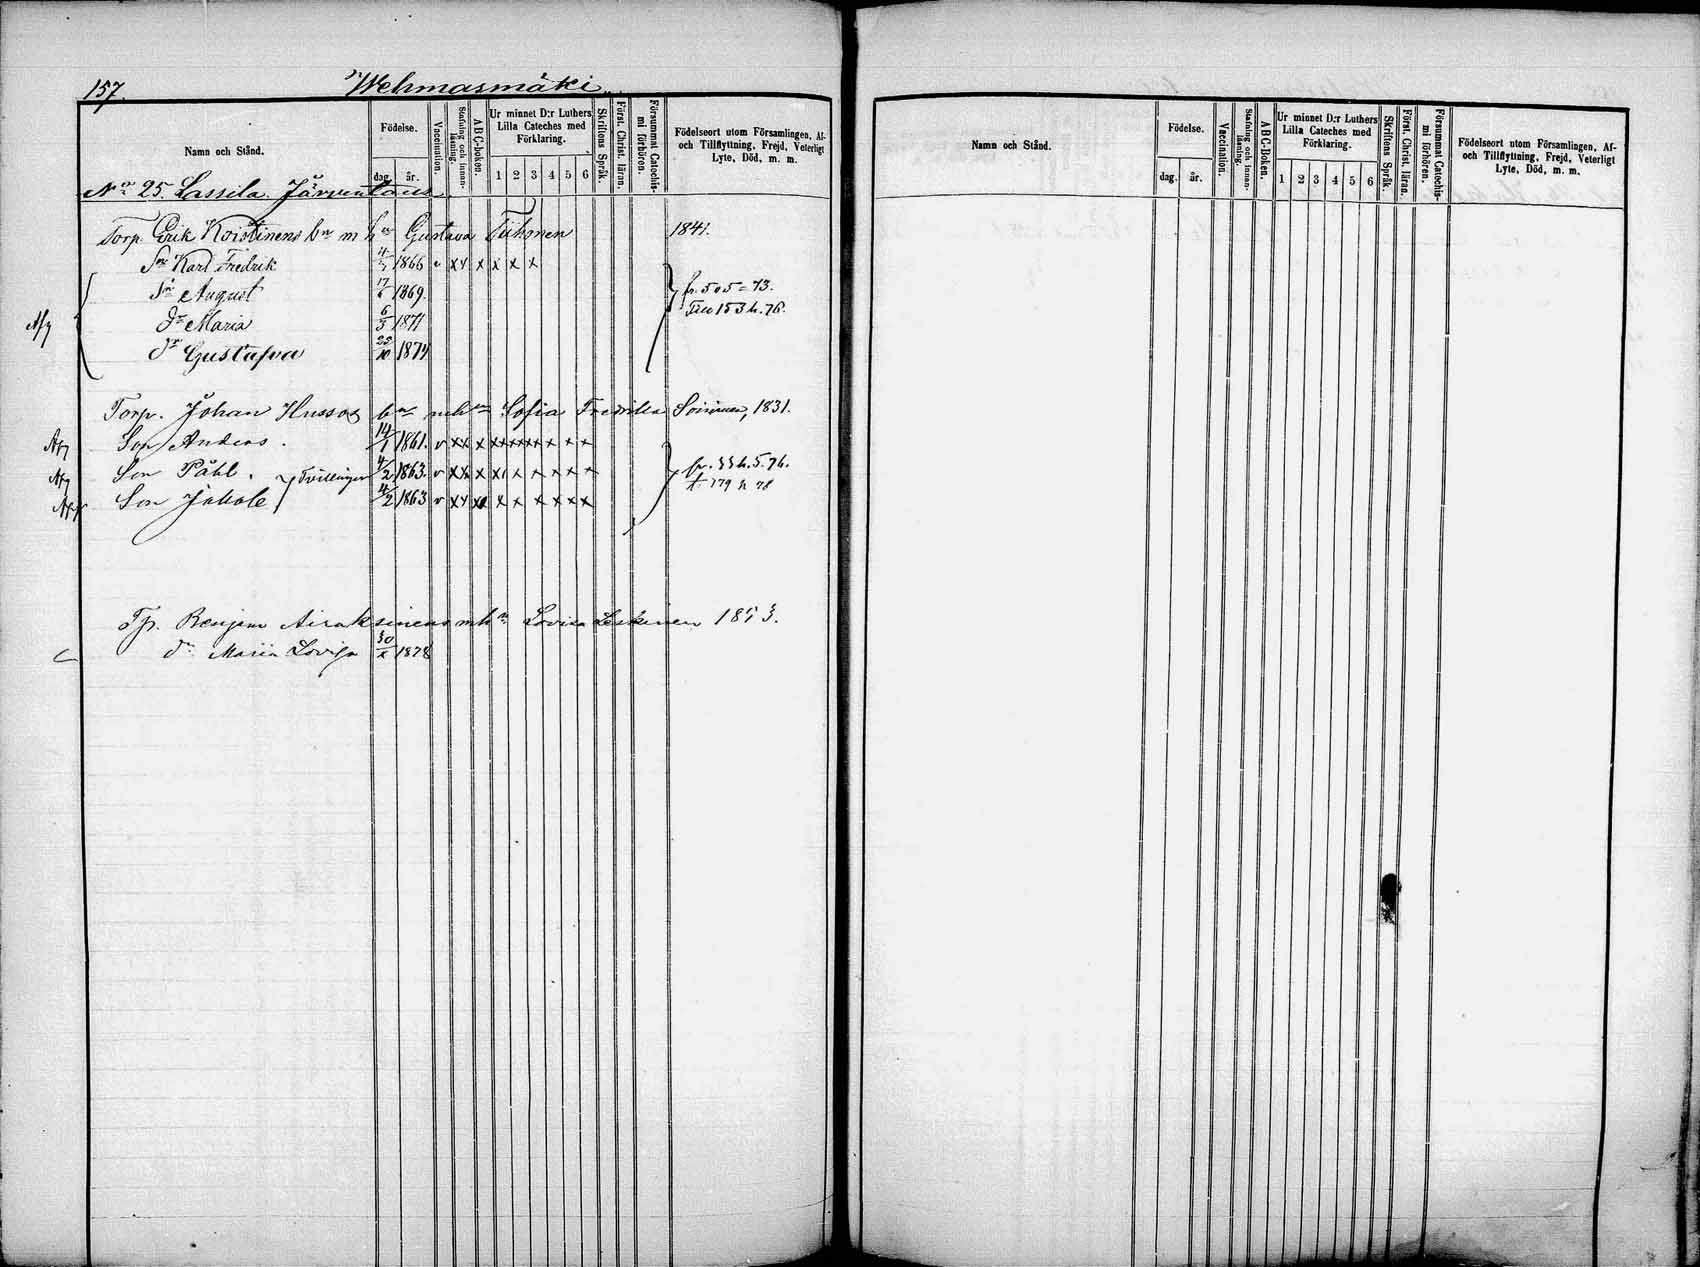 157.
Wehmasmäki
Namn och Stånd.
Födelse.
dag. år.
Vaccination.
Stafning och innanläsning.
ABC-boken.
Ur minnet D:r Luthers Lilla Cateches med Förklaring.
1 2 3 4 5 6
Skriftens Språk.
Först. Christ. läran.
Försummat Catechismi förhören.
Födelseort utom Församlingen, Af- och Tillflyttning, Frejd, Veterligt Lyte, Död, m. m.
No 25. Lassila
Torp. Erik Koistinens bn m hu Gustava Tiihonen 1841.
Sn Karl Fredrik 1866 v xx x x x x
Sn August 17 1869. fr. 505 = 73.
Afg dr Maria 6/3 1871 Till 153 h. 76.
dr Gustafva 22/10 1874
Torp. Johan Hussos bn mhu Sofia Fredrika 1831.
Afg Son Anders. 14/1 1861. v xx x
Afg Son Påhl. Tvillingar 4/2 1863. v xx x
Son Jakob 4/2 1863 v xx
179 h 78
Tp. Benjam Airaksinens mhu Lovisa Leskinen 1853.
dr Maria Lovisa 1878
Namn och Stånd.
Födelse.
dag. år.
Vaccination.
Stafning och innanläsning.
ABC-Boken.
Ur minnet D:r Luthers Lilla Cateches med Förklaring.
1 2 3 4 5 6
Skriftens Språk.
Först. Christ. läran.
Försummat Catechismi förhören.
Födelseort utom Församlingen, Af- och Tillflyttning, Frejd, Veterligt Lyte, Död, m. m.